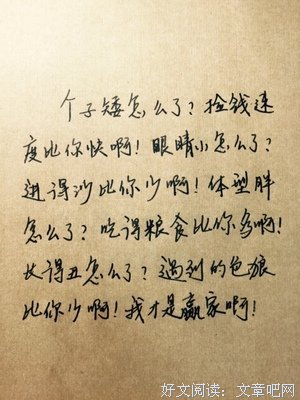 个子矮怎么了？捡钱速
度比你快啊！眼睛小怎么了？
进得沙比你少啊！体型胖
怎么了？吃得粮食比你多啊！
长得丑怎么了？遇到的色狼
比你少啊！我才是赢家啊！
好文阅读：文章吧网